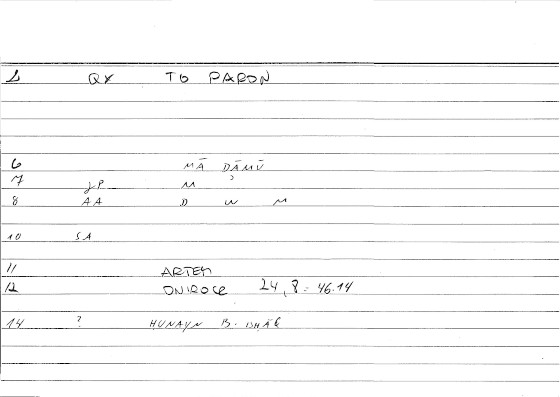 1 QY TO PARON
6 MĀ DĀMŪ
7 JP M
8 AA D W M
10 SA
11 ARTEM
12 ONIROCR 24,8 - 46.14
14 ? HUNAYN B. ISHĀK